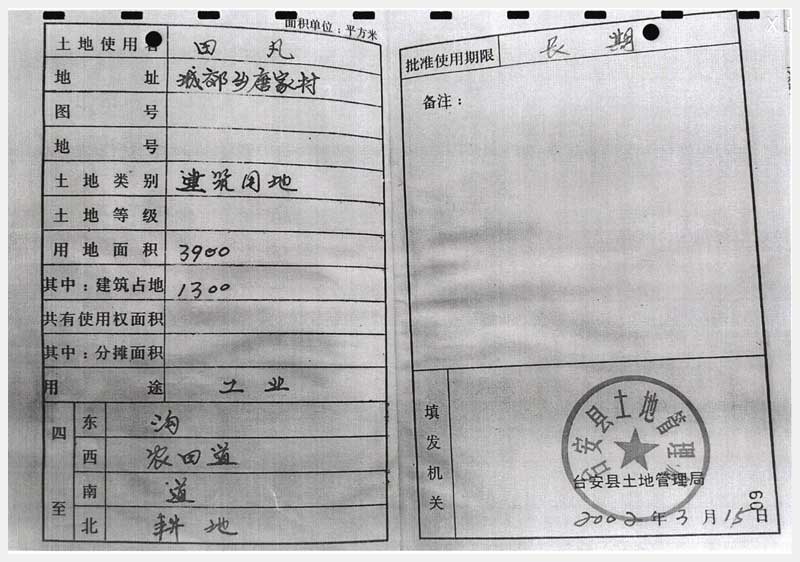 面积单位：平方米
土地使用者 田凡
地址 城郊乡唐家村
图号
地号
土地类别 建筑用地
土地等级
用地面积 3900
其中：建筑占地 1300
共有使用权面积
其中：分摊面积
用途 工业
四至
东 沟
西 农田道
南 道
北 耕地
批准使用期限 长期
备注：
填发机关
台安县土地管理局
台安县土地管理局
2002年3月15日
09